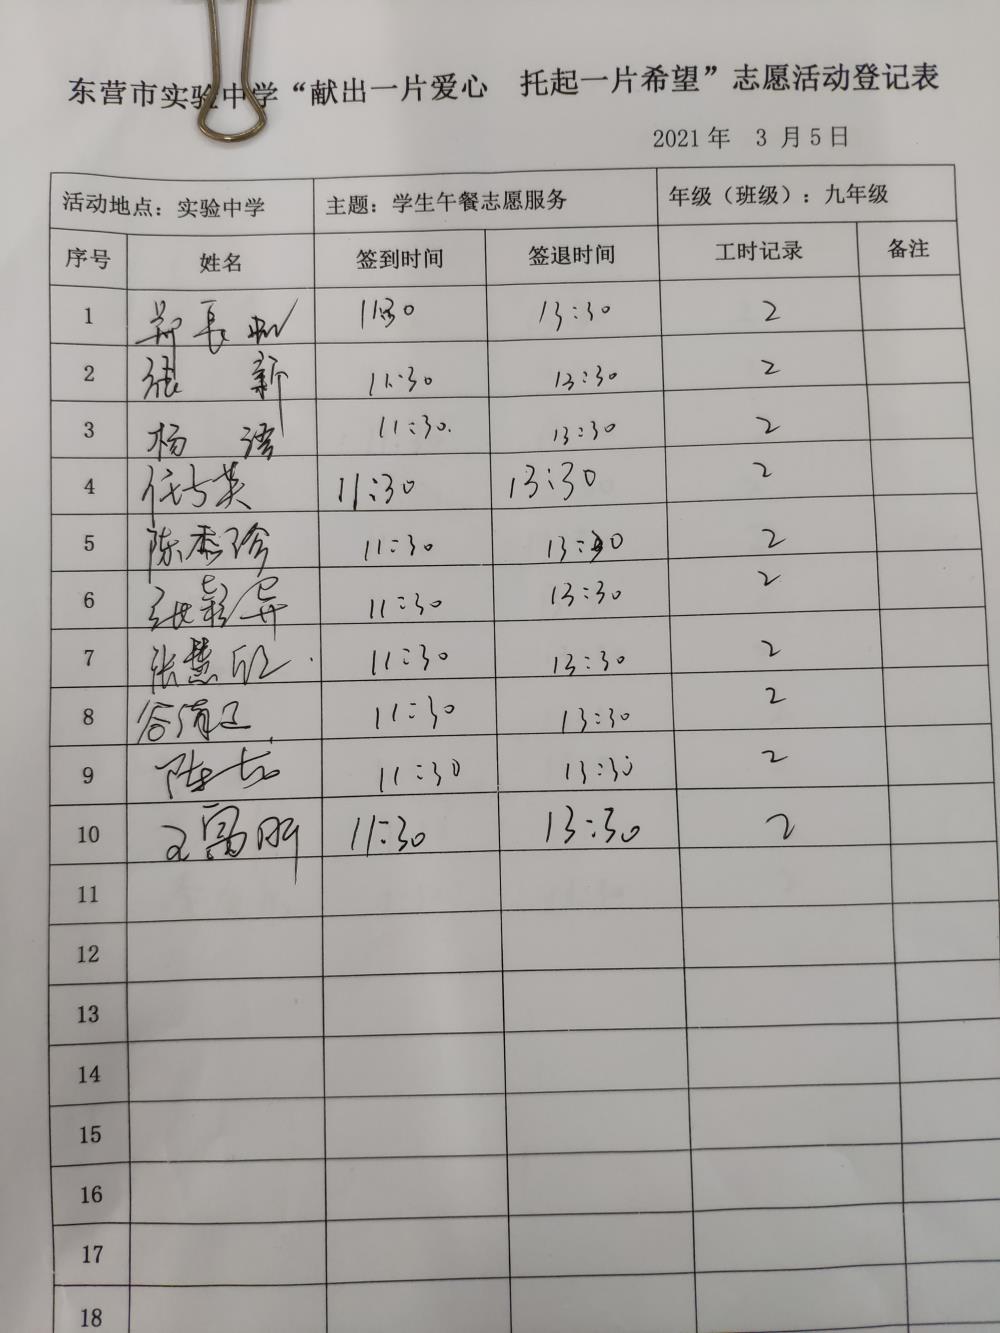 东营市实验中学“献出一片爱心 托起一片希望”志愿活动登记表
2021 年 3 月 5 日
活动地点：实验中学 主题：学生午餐志愿服务 年级（班级）：九年级
序号 姓名 签到时间 签退时间 工时记录 备注
1 11:30 13:30 2
2 张新 11:30 13:30 2
3 杨 11:30 13:30 2
4 任英 11:30 13:30 2
5 陈秀珍 11:30 13:30 2
6 张彩异 11:30 13:30 2
7 张慧欣 11:30 13:30 2
8 谷 11:30 13:30 2
9 陈 11:30 13:30 2
10 王富明 11:30 13:30 2
11
12
13
14
15
16
17
18